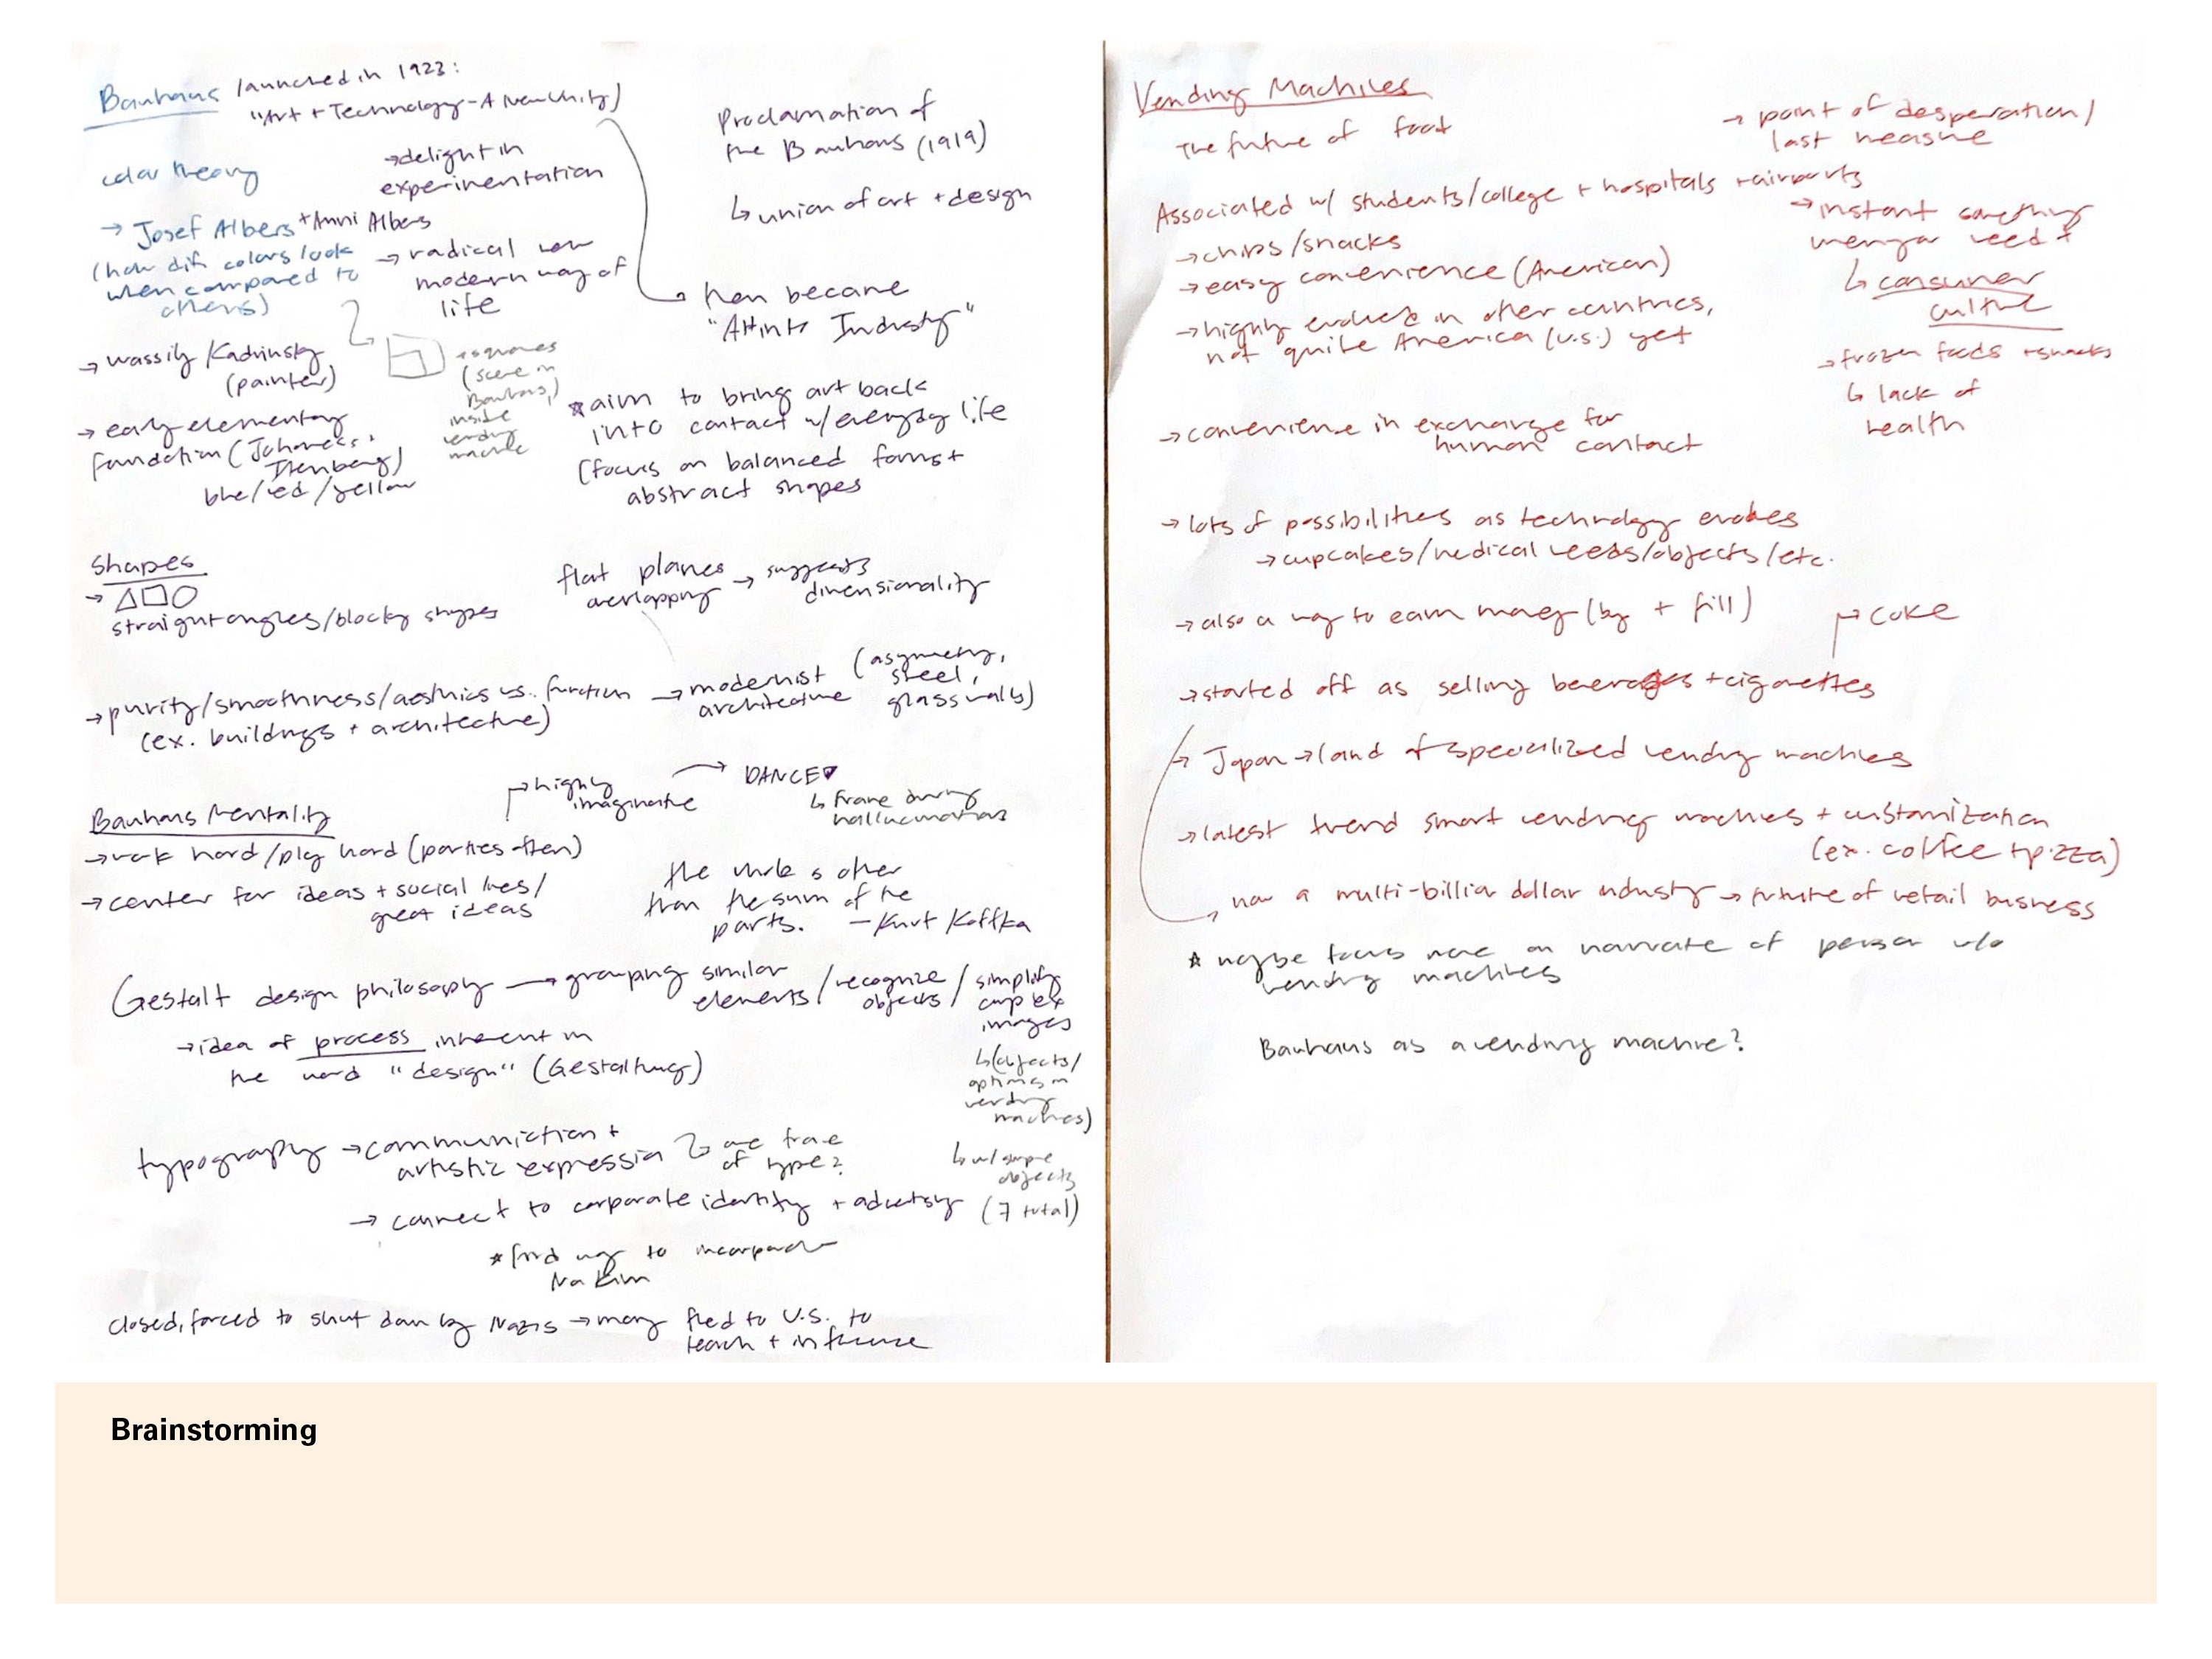 Bauhaus launched in 1923:
"Art + Technology - A New Unity)
color theory
→ delight in
experimentation
→ Josef Albers + Anni Albers
(how diff. colors look
when compared to
others)
→ radical new
modern way of
life
→ Wassily Kadinsky
(painter)
→ squares
(scene in
Bauhaus,)
inside
vending
machine
→ early elementary
foundation (Johannes,
blue/red/yellow
Proclamation of
the Bauhaus (1919)
↳ union of art + design
then became
"Art into Industry"
☆ aim to bring art back
into contact w/everyday life
(focus on balanced forms +
abstract shapes
Shapes
→ △□○
straight angles/blocky shapes
flat planes
overlapping → suggests
dimensionality
→ purity/smoothness/aesthics vs. function → modernist (asymmetry,
(ex. buildings + architecture)
architecture steel,
glass walls)
Bauhaus Mentality
highly
imaginative
DANCE
↳ frame during
hallucinations
→ work hard/play hard (parties often)
→ center for ideas + social lives/
great ideas
the whole is other
than the sum of the
parts. — Kurt Koffka
Gestalt design philosophy → grouping similar
elements / recognize
objects / simplify
complex
images
→ idea of process inherent in
the word "design" (Gestaltung)
↳ (objects/
options in
vending
machines)
↳ w/ simple
objects
(7 total)
typography → communiction +
artistic expression
one frame
of type?
→ connect to corporate identity + advertising
* find way to incorporate
Na Kim
closed, forced to shut down by Nazis → many fled to U.S. to
teach + influence
Vending Machines
The future of food
→ point of desperation/
last measure
Associated w/ students/college + hospitals + airports
→ chips/snacks
→ easy convenience (American)
→ highly evolved in other countries,
not quite America (U.S.) yet
→ instant something
need +
↳ consumer
culture
→ frozen foods + snacks
↳ lack of
health
→ convenience in exchange for
human contact
→ lots of possibilities as technology evolves
→ cupcakes/medical needs/objects/etc.
→ also a way to earn money (buy + fill)
→ coke
→ started off as selling beverages + cigarettes
→ Japan → land of specialized vending machines
→ latest trend smart vending machines + customization
(ex. coffee + pizza)
now a multi-billion dollar industry → future of retail business
☆ maybe focus more on narrative of person w/o
vending machines
Bauhaus as a vending machine?
Brainstorming